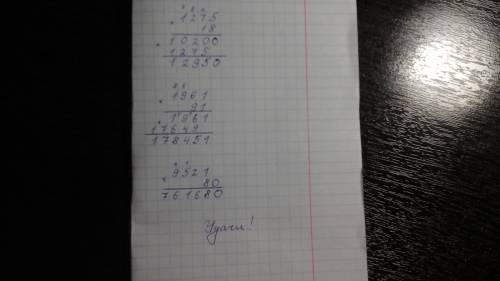 1275
× 18
10200
+ 1275
12950
1961
× 91
1961
+ 17649
178451
9521
× 80
761680
Удачи!